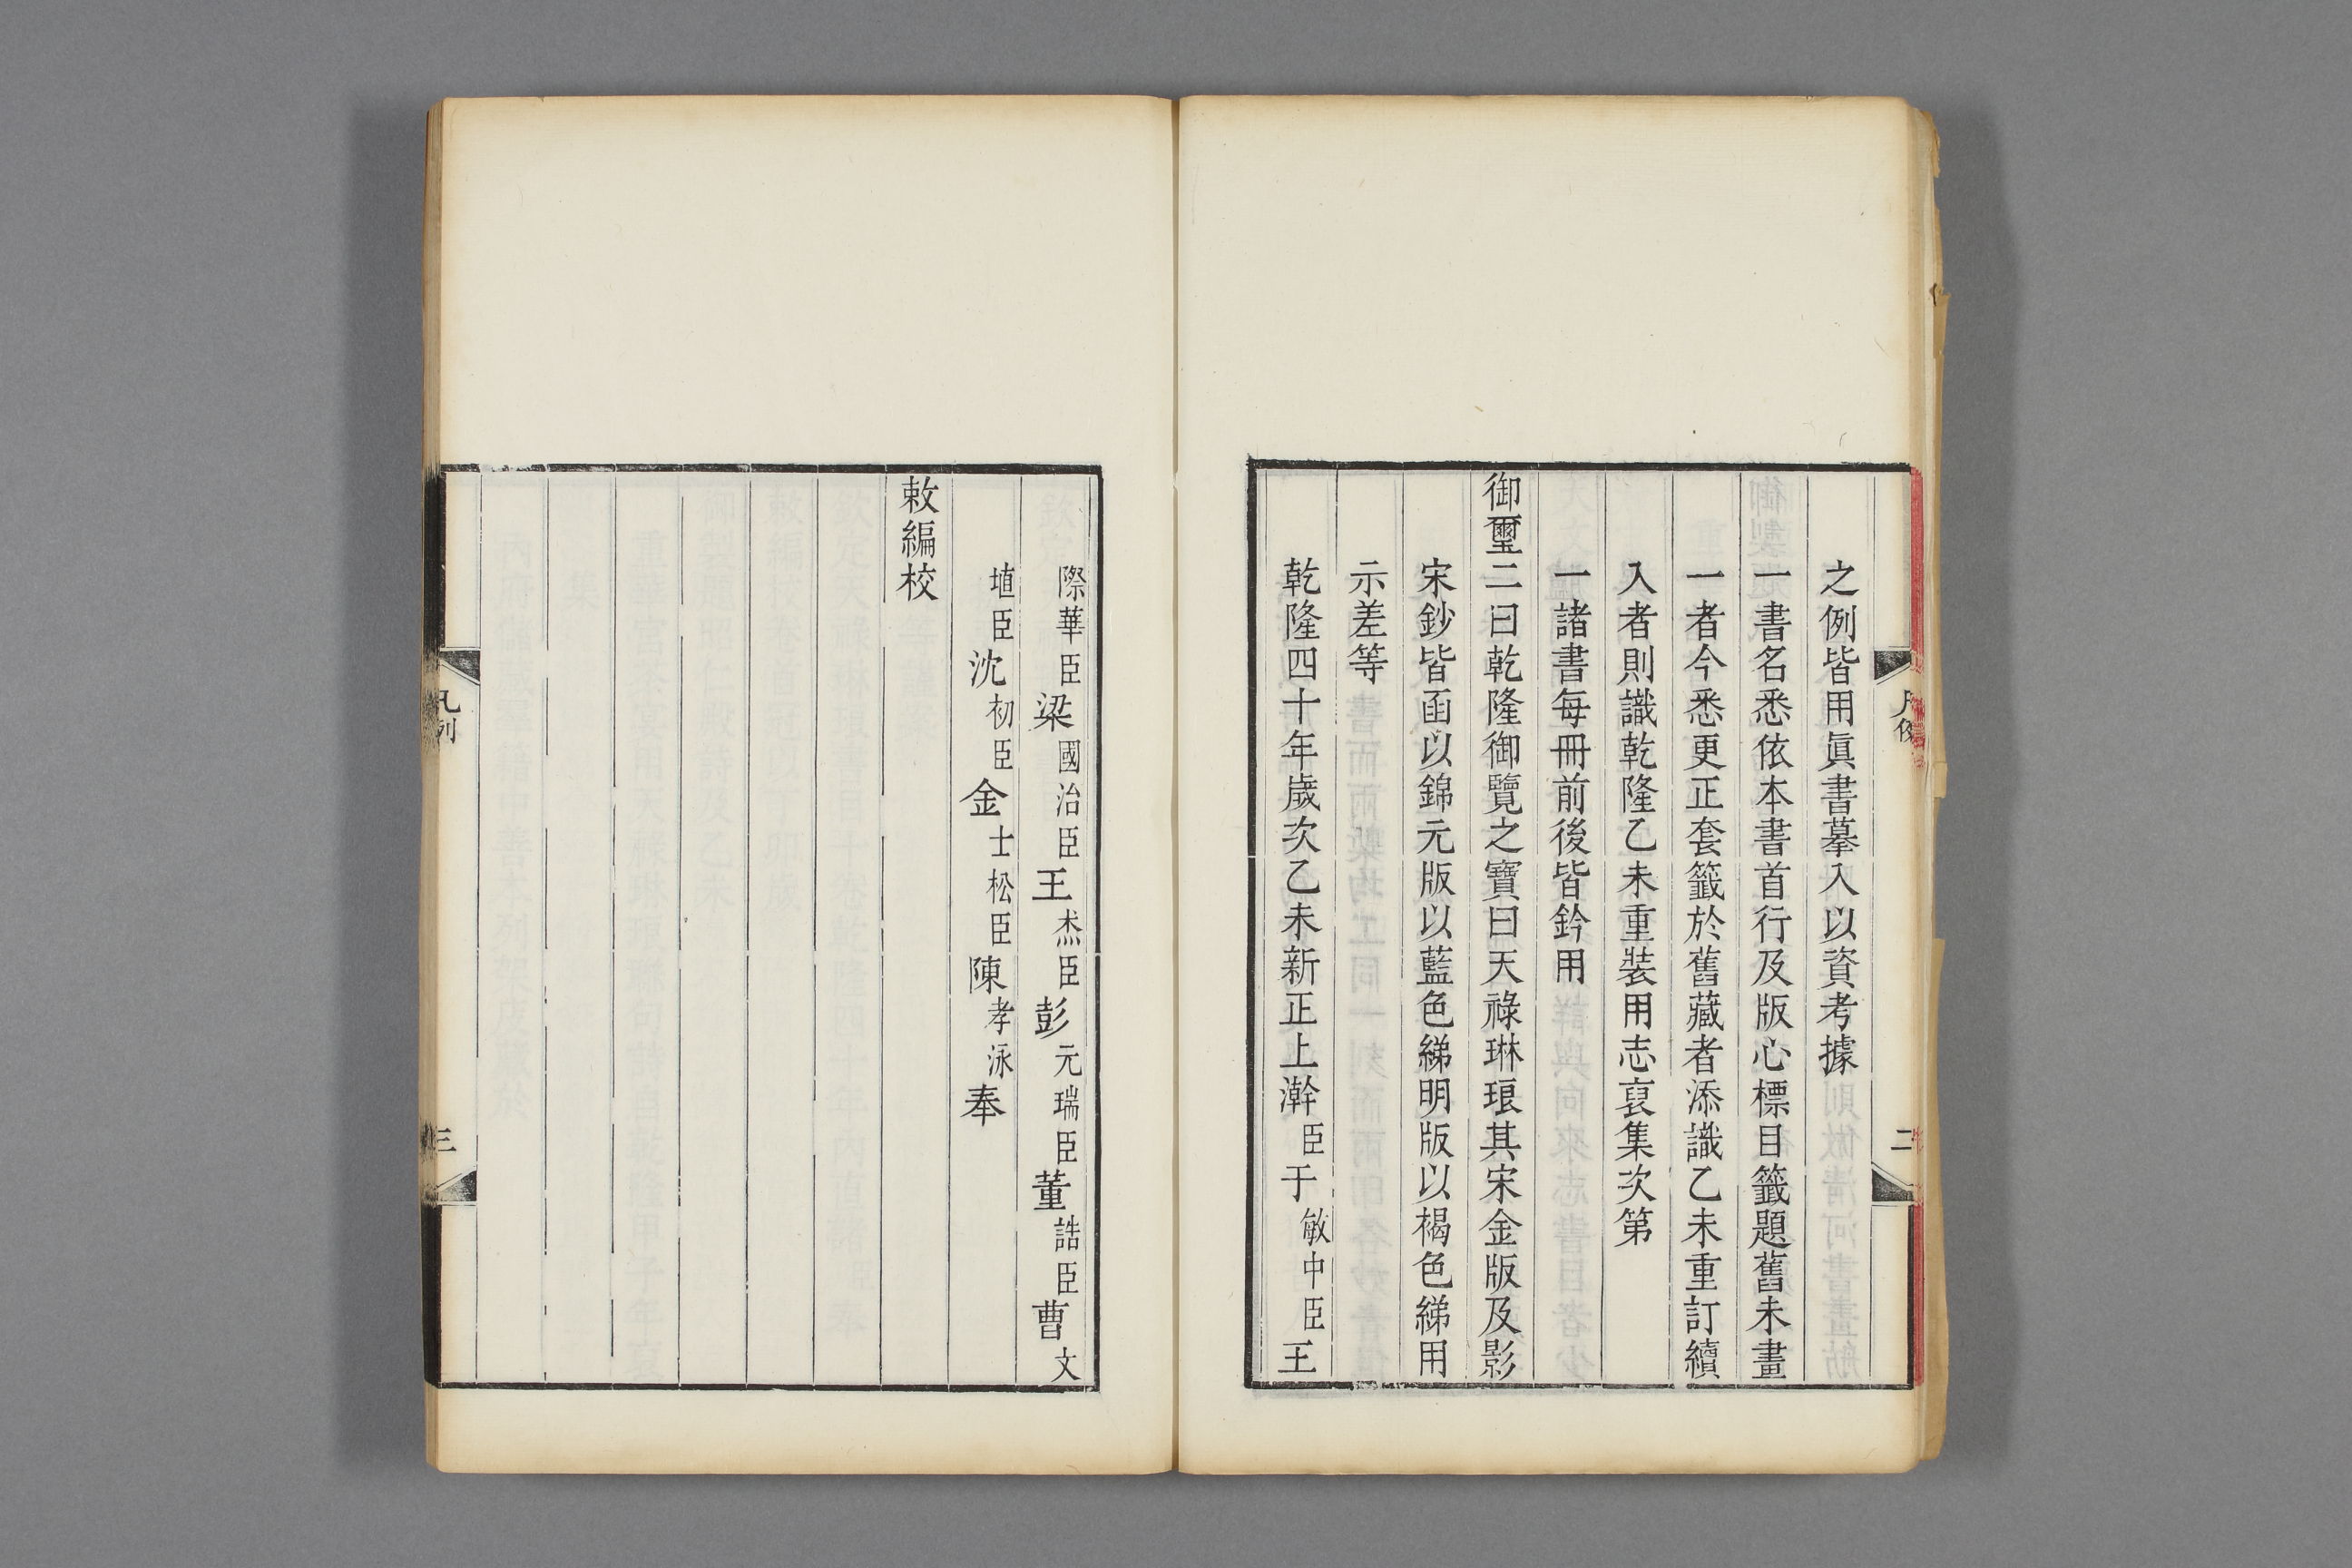 之例皆用眞書摹入以資考據
一書名悉依本書首行及版心標目籤題舊未畫
一者今悉更正套籤於舊藏者添識乙未重訂續
入者則識乾隆乙未重裝用志裒集次第
一諸書每冊前後皆鈐用
御璽二曰乾隆御覽之寶曰天祿琳琅其宋金版及影
宋鈔皆函以錦元版以藍色綈明版以褐色綈用
示差等
乾隆四十年歲次乙未新正上澣臣于敏中臣王
際華臣梁國治臣王杰臣彭元瑞臣董誥臣曹文
埴臣沈初臣金士松臣陳孝泳奉
敕編校
凡例
三